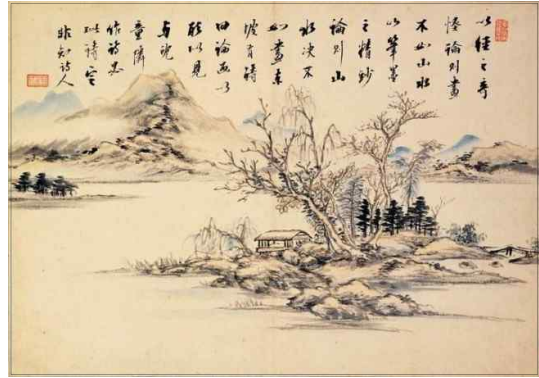 以徑之奇
怪論則畫
不如山水
以筆墨
之精妙
論則山
水決不
如畫東
坡有詩
曰論畫以
形似見
與兒
童隣
作詩必
此詩定
非知詩人